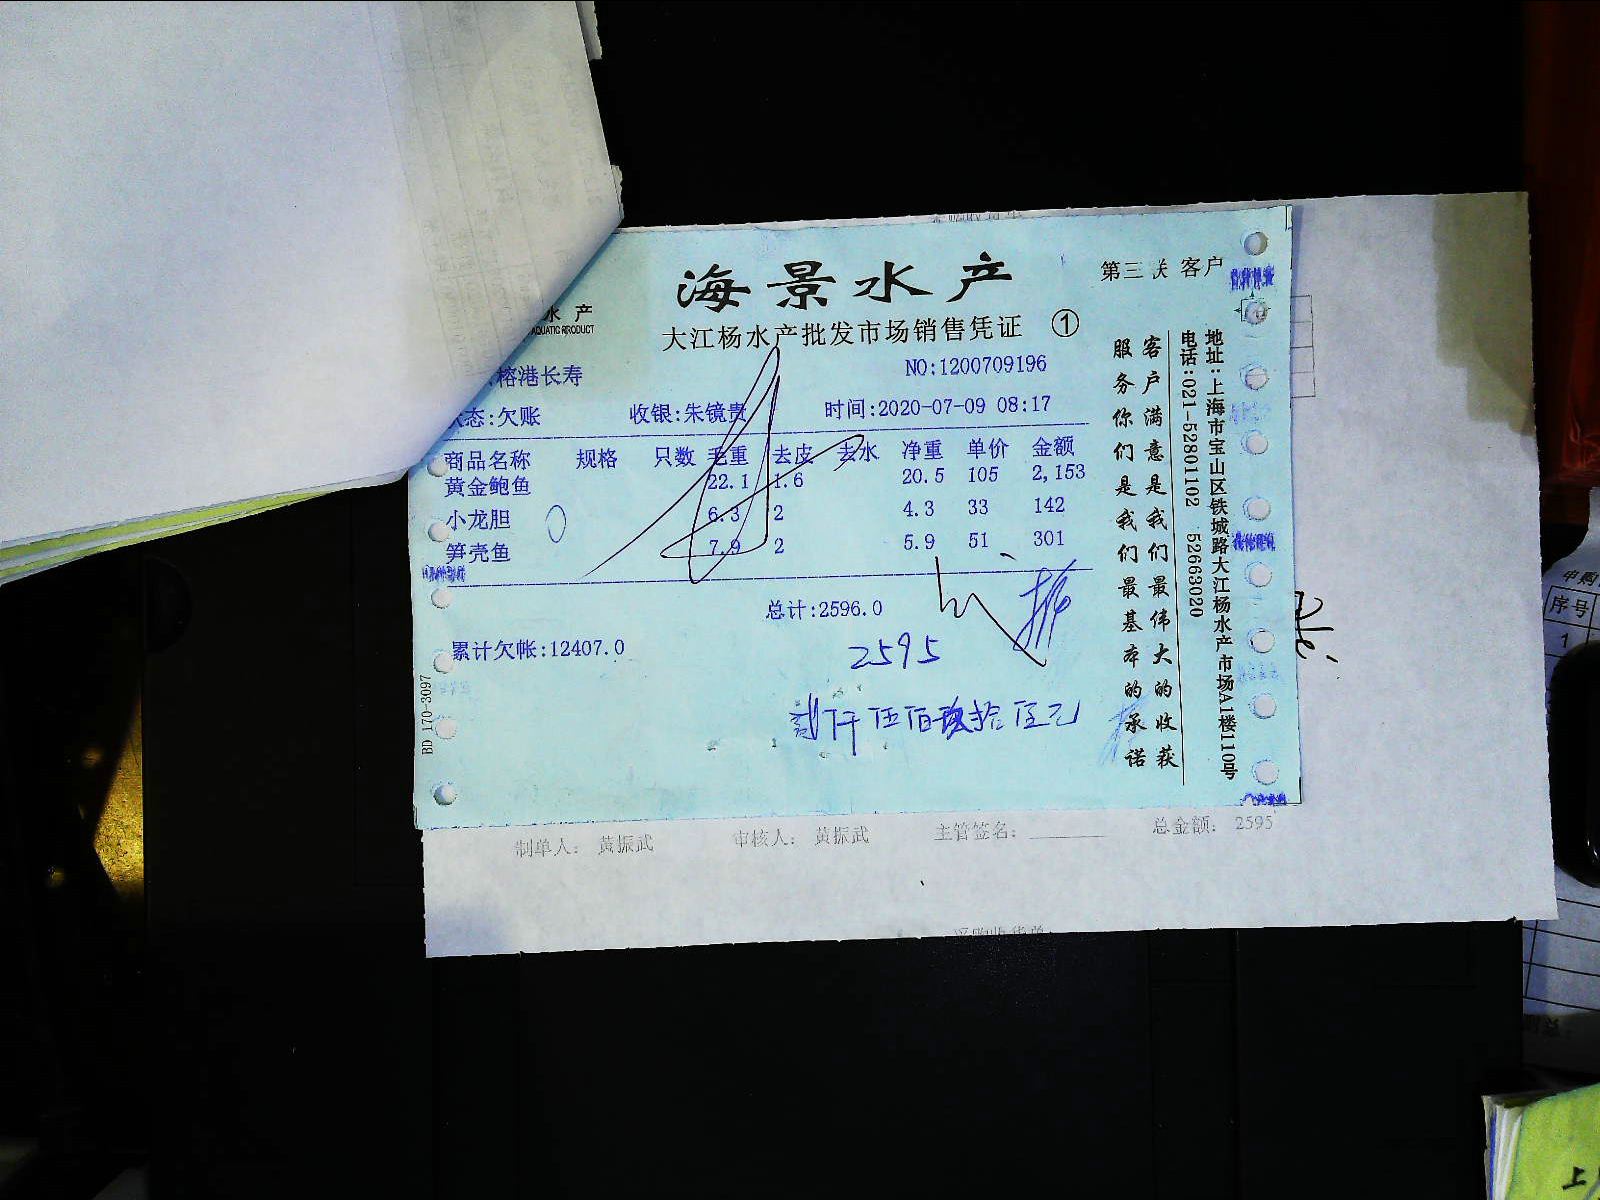 海景水产
第三联 客户
水产
AQUATIC PRODUCT
大江杨水产批发市场销售凭证 ①
榕港长寿
NO:1200709196
状态:欠账 收银:朱镜贵 时间:2020-07-09 08:17
商品名称 规格 只数 毛重 去皮 去水 净重 单价 金额
黄金鲍鱼 22.1 1.6 20.5 105 2,153
小龙胆 6.3 2 4.3 33 142
笋壳鱼 7.9 2 5.9 51 301
总计:2596.0
累计欠帐:12407.0
2595
贰仟伍佰玖拾伍元
BD 170-3097
客户满意是我们最伟大的收获
服务你们是我们最基本的承诺
地址:上海市宝山区铁城路大江杨水产市场A1楼110号
电话:021-52801102 52663020
制单人: 黄振武 审核人: 黄振武 主管签名: 总金额: 2595
采购收货单
申购
序号
1
上